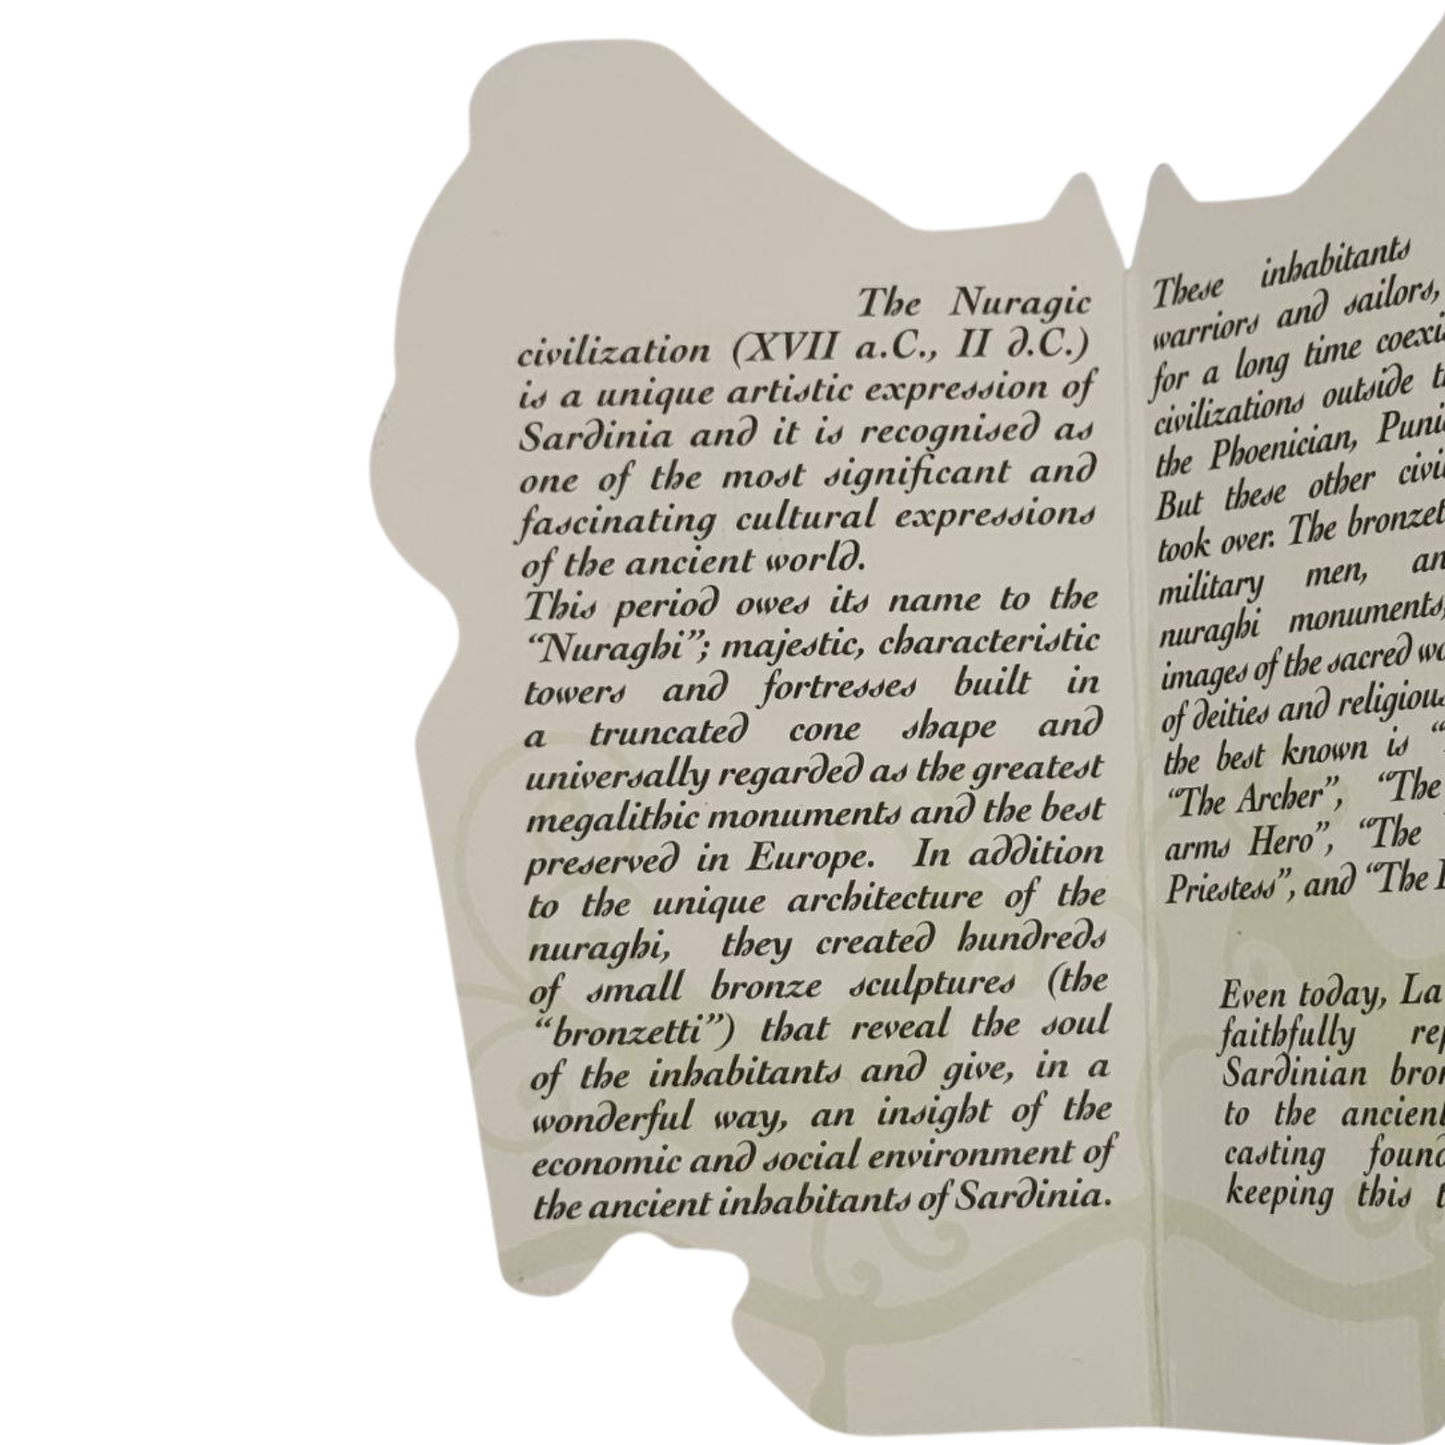 The Nuragic
civilization (XVII a.C., II d.C.)
is a unique artistic expression of
Sardinia and it is recognised as
one of the most significant and
fascinating cultural expressions
of the ancient world.
This period owes its name to the
“Nuraghi”; majestic, characteristic
towers and fortresses built in
a truncated cone shape and
universally regarded as the greatest
megalithic monuments and the best
preserved in Europe. In addition
to the unique architecture of the
nuraghi, they created hundreds
of small bronze sculptures (the
“bronzetti”) that reveal the soul
of the inhabitants and give, in a
wonderful way, an insight of the
economic and social environment of
the ancient inhabitants of Sardinia.
These inhabitants
warriors and sailors,
for a long time
civilizations outside
the Phoenician,
But these other
took over. The
military men,
nuraghi monuments,
images of the sacred
of deities and
the best known is
“The Archer”, “The
arms Hero”, “The
Priestess”, and “The
Even today, La
faithfully
Sardinian
to the
casting
keeping this